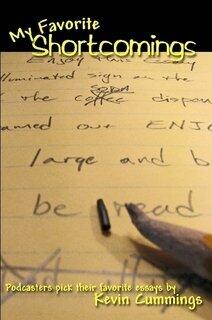 My Favorite
Shortcomings
Enjoy this essay
lluminated sign on the
soon
the coffee dispen
amed our ENJO
large and b
be read
Podcasters pick their favorite essays by
Kevin Cummings